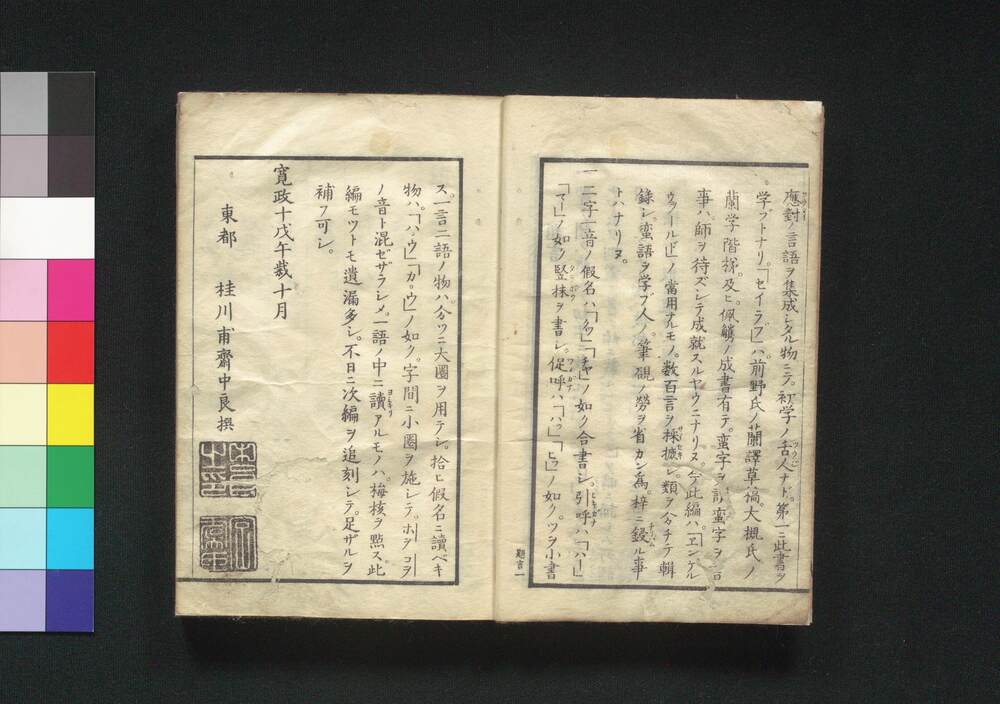 應對ノ言語ヲ集成シタル物ニテ。初学ノ舌人ナド。第一ニ此書ヲ
学フトナリ。「セイラブ」ハ。前野氏ノ蘭譯草稿。大槻氏ノ
蘭学階梯。及ヒ。佩觿ノ成書有テ。蛮字ヲ 蛮字ヲ
事ハ。師ヲ待ズシテ成就スルヤウニナリヌ。今此編ハ。「エンケル
ウヲールド」ノ當用ナルモノ。数百言ヲ採摭シ。類ヲ分チテ輯
録シ。蛮語ヲ学ブ人ノ。筆硯ノ勞ヲ省カン為。梓ニ鋟ル事
トハナリヌ。
一二字一音ノ假名ハ。「クワ」「チヤ」ノ如ク合書シ。引呼ハ「ハー」
「マー」ノ如ク竪抹ヲ書シ。促呼ハ「ハツ」「ヒツ」ノ如ク。ツヲ小書
題言一
ス。一言二語ノ物ハ。分ツニ大圏ヲ用テシ。拾ヒ假名ニ讀ベキ
物ハ。「ハ。ウ」「カ。ウ」ノ如ク。字間ニ小圏ヲ施シテ。ホヲ コヲ
ノ音ト混ゼザラシメ。一語ノ中ニ讀アルモノハ。梅核ヲ點ス。此
編モツトモ遺漏多シ。不日ニ次編ヲ追刻シテ。足ザルヲ
補フ可シ。
寛政十戊午載十月
東都 桂川甫齋中良撰